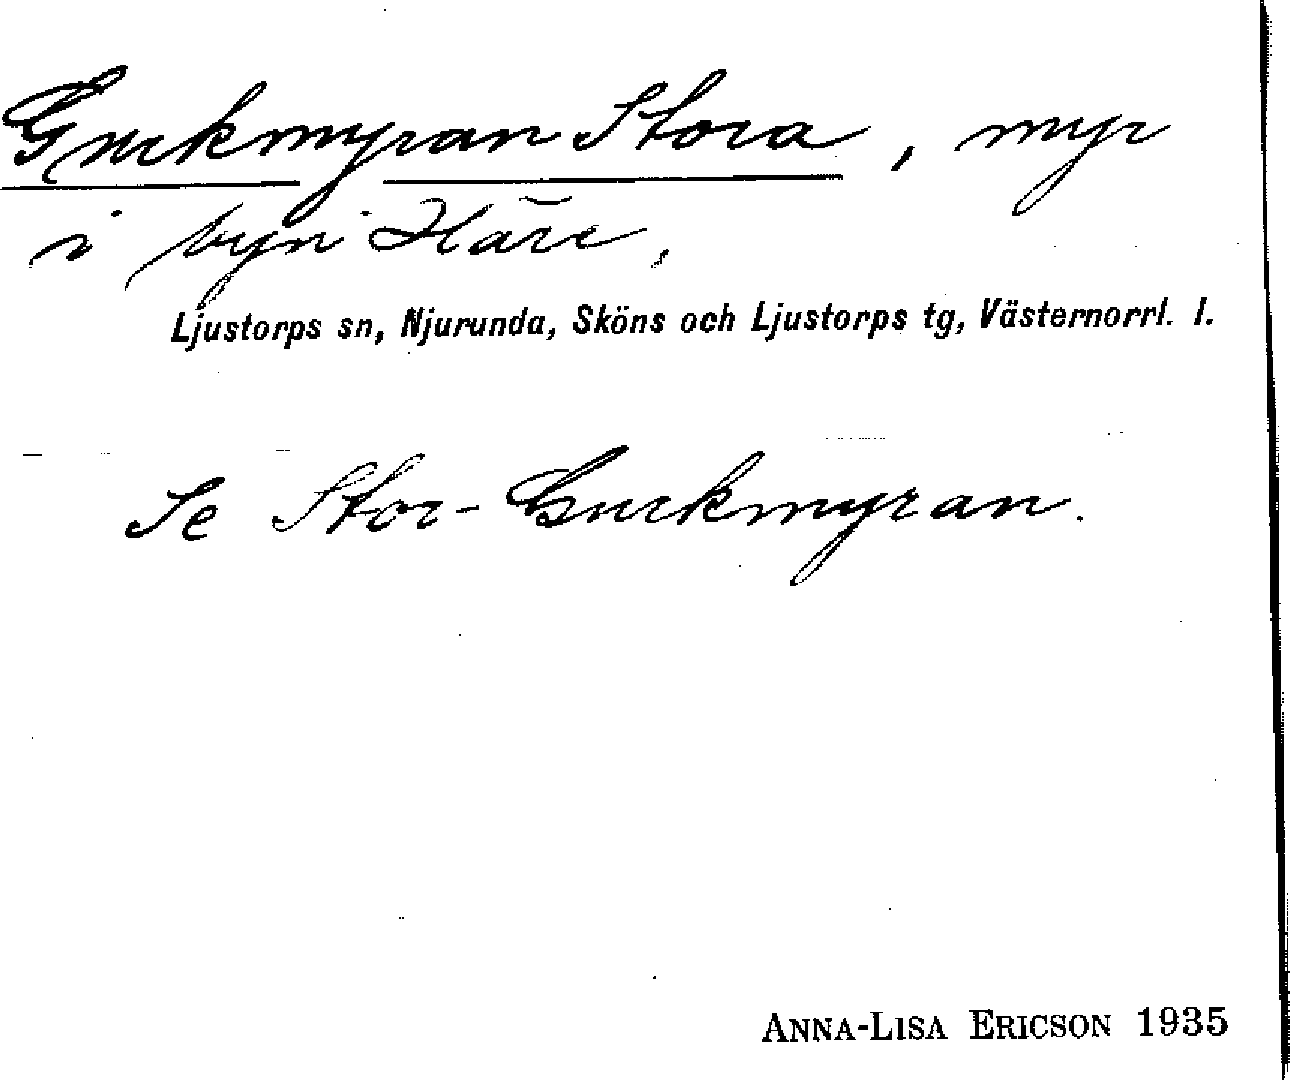 Guckmyran Stora, myr
i byn Häre,
Ljustorps sn, Njurunda, Sköns och Ljustorps tg, Västernorrl. l.
Se Stor-Guckmyran.
ANNA-LISA ERICSON 1935